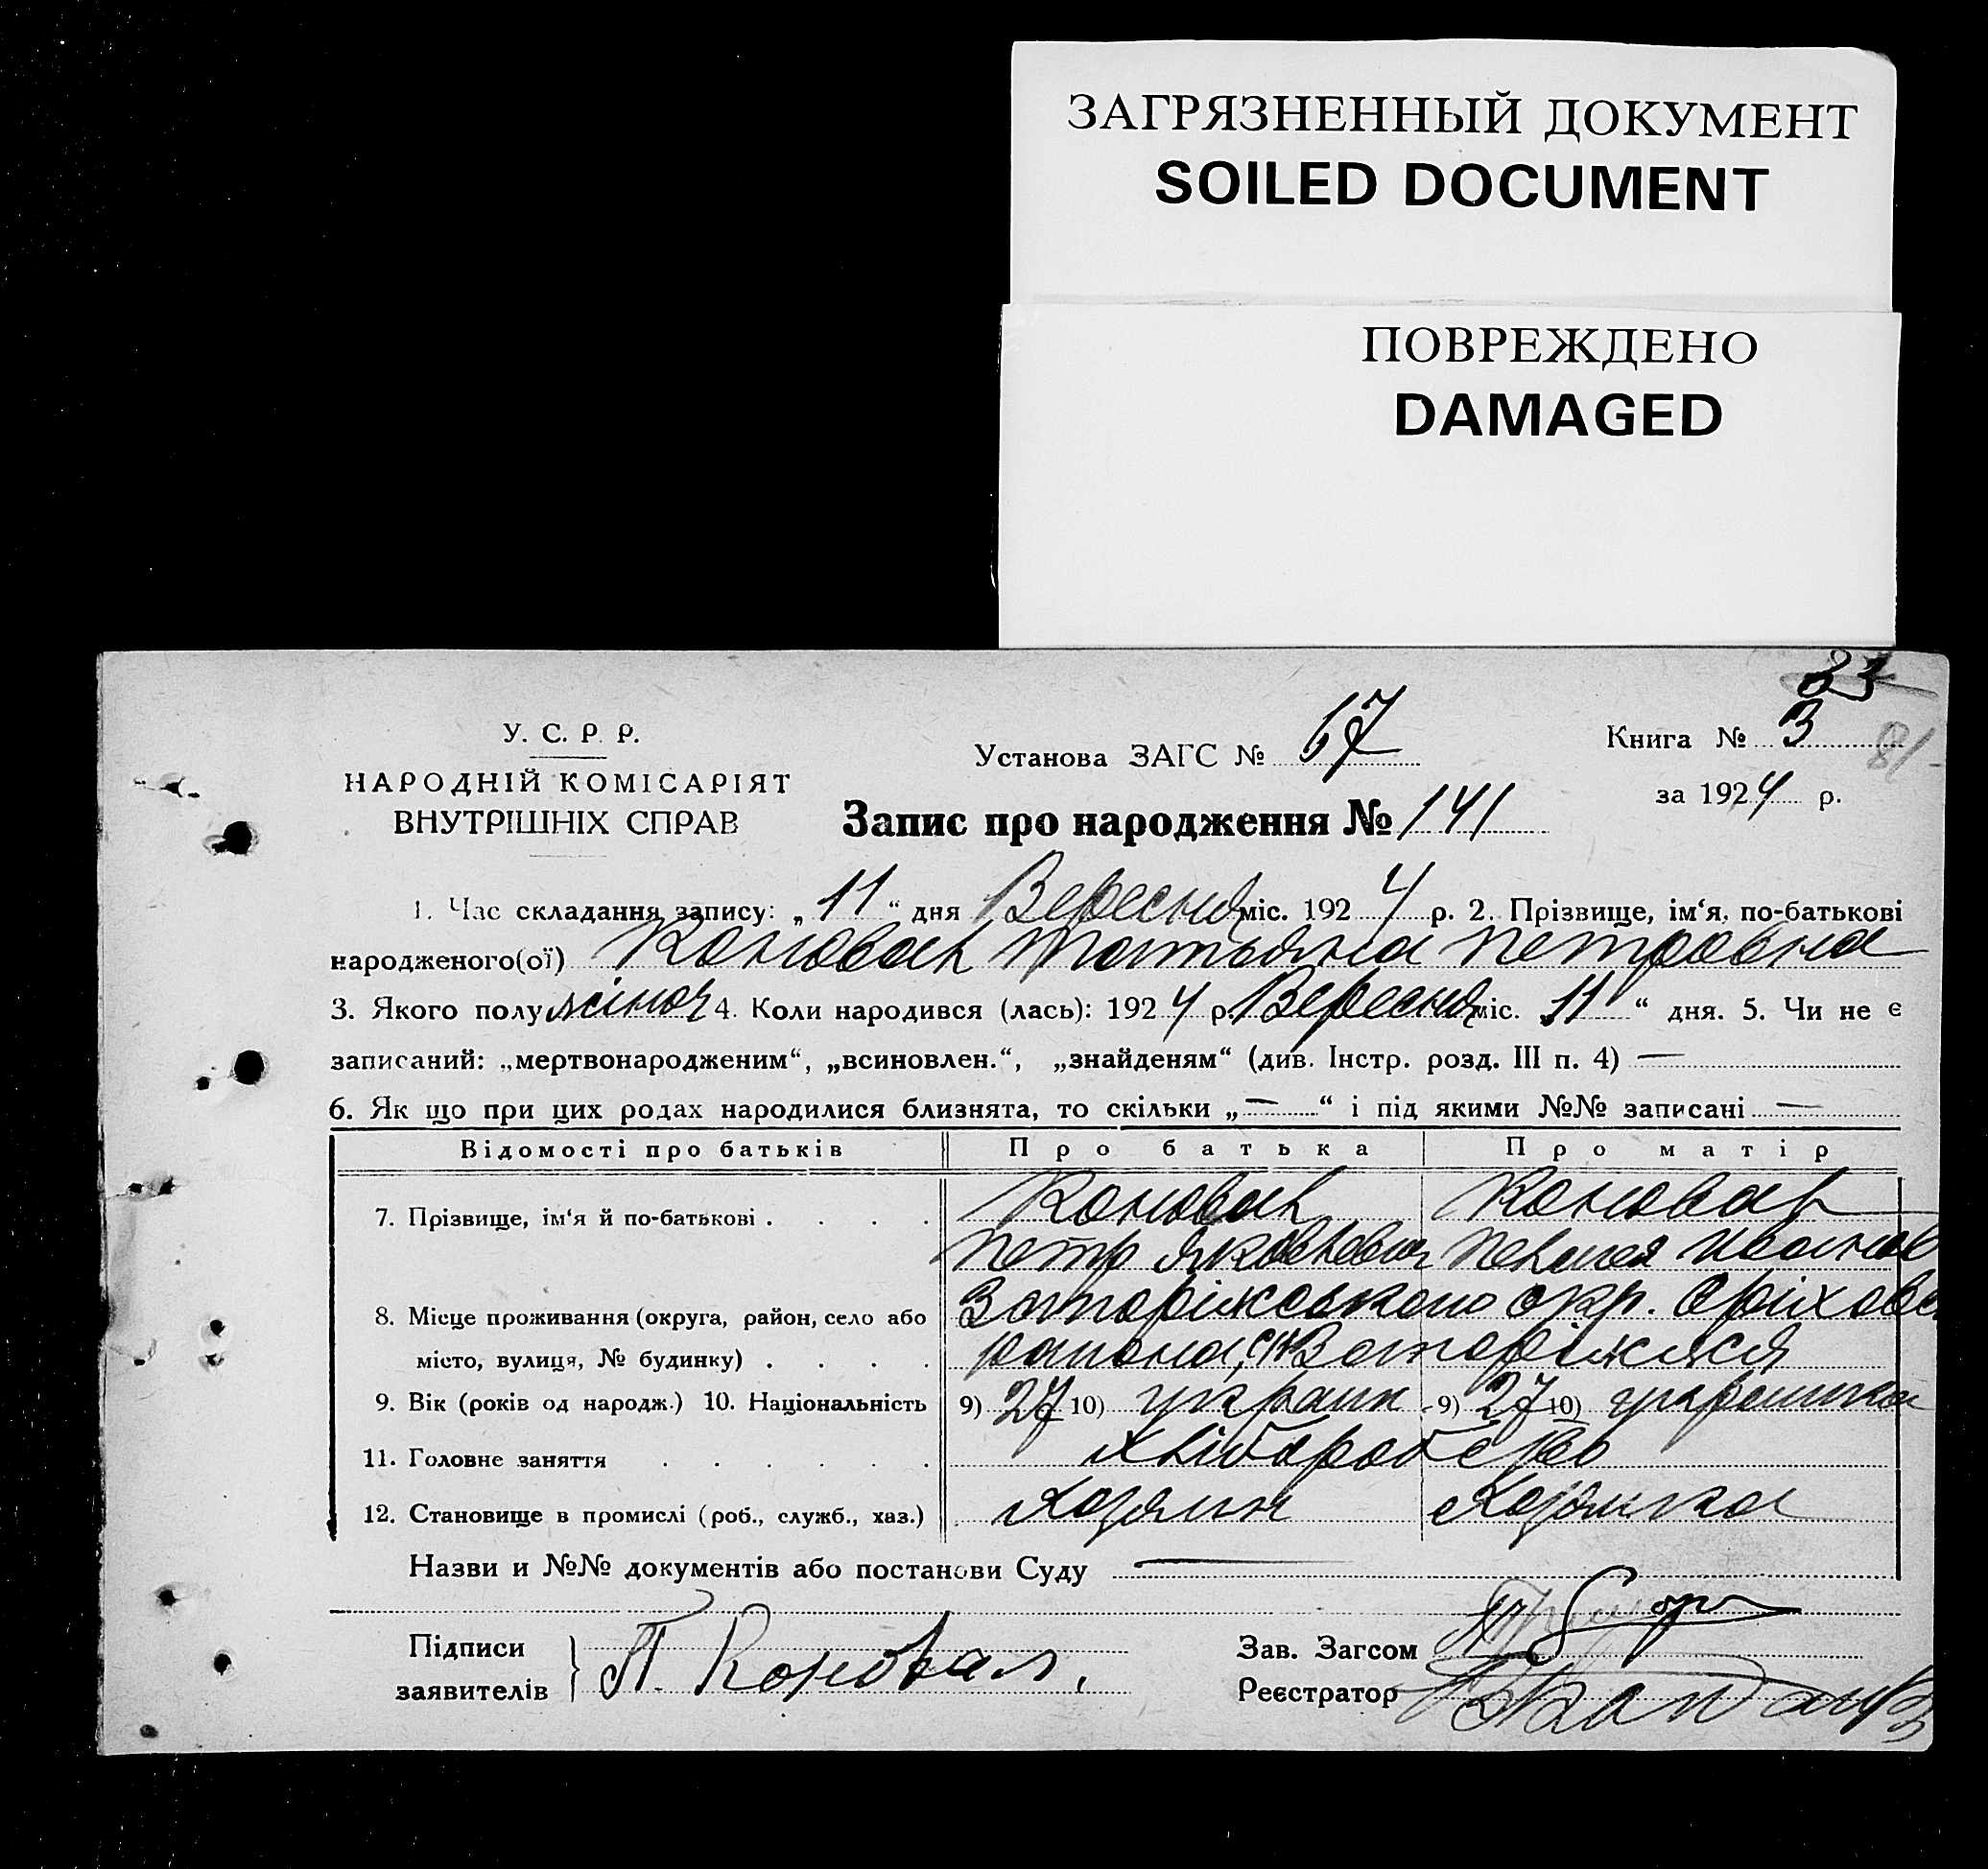 ЗАГРЯЗНЕННЫЙ ДОКУМЕНТ
SOILED DOCUMENT
ПОВРЕЖДЕНО
DAMAGED
33
81
У. С. Р. Р.
НАРОДНІЙ КОМІСАРІЯТ
ВНУТРІШНІХ СПРАВ
Установа ЗАГС № 67
Книга № 3
за 1924 р.
Запис про народження № 141
1. Час складання запису: „11“ дня Вересня міс. 1924 р. 2. Прізвище, ім‘я, по-батькові
народженого(ої) Коновал Татьяна Петровна
3. Якого полу жіноч 4. Коли народився (лась): 1924 р. Вересня міс. „11“ дня. 5. Чи не є
записаний: „мертвонародженим“, „всиновлен.“, „знайденям“ (див. Інстр. розд. III п. 4) —
6. Як що при цих родах народилися близнята, то скільки „—“ і під якими №№ записані —
Відомості про батьків Про батька Про матір
7. Прізвище, ім‘я й по-батькові . . . . Коновал Коновал
Петр Яковлевич Пелагея Иванов
8. Місце проживання (округа, район, село або Запоріжського окр. Оріхов
місто, вулиця, № будинку) . . . . района,
9. Вік (років од народж.) 10. Національність 9) 27 10) украин 9) 27 10) украинка
11. Головне заняття . . . . . . Хліборобство
12. Становище в промислі (роб., служб., хаз.) Хозяин Хозяйка
Назви и №№ документів або постанови Суду —
Підписи
заявителів } П. Коновал
Зав. Загсом
Реєстратор